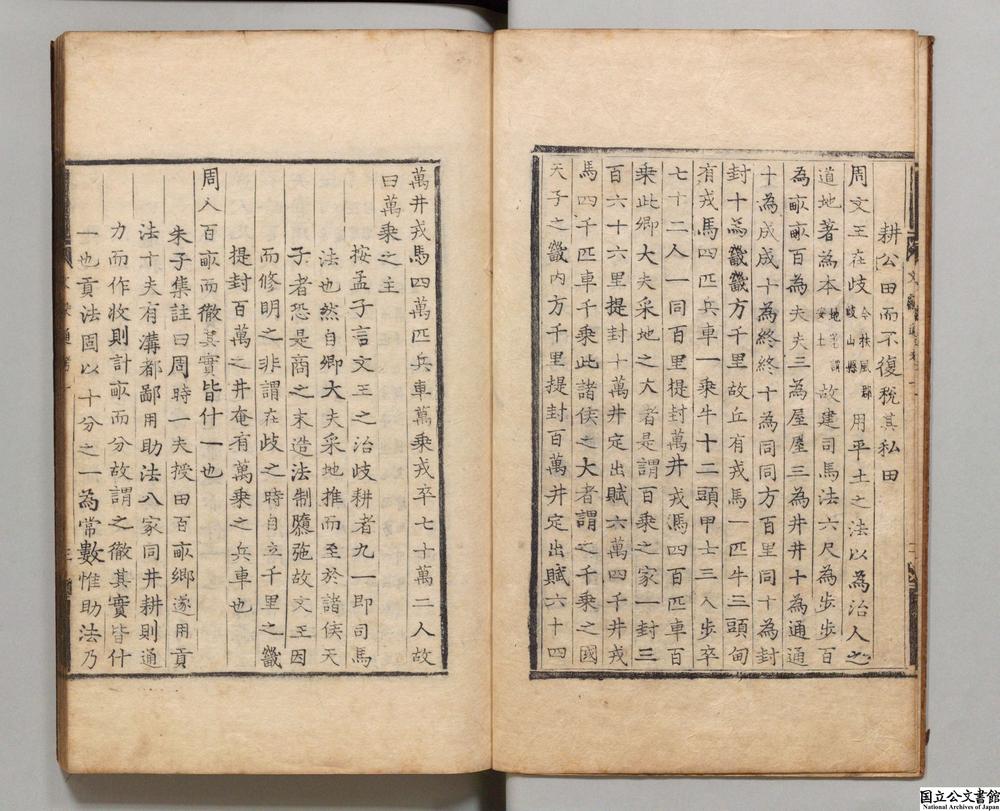 耕公田而不復稅其私田
周文王在歧今扶風郡岐山縣用平土之法以為治人之
道地著為本地著謂安土故建司馬法六尺為步步百
為畝畝百為夫夫三為屋屋三為井井十為通通
十為成成十為終終十為同同方百里同十為封
封十為畿畿方千里故丘有戎馬一匹牛三頭甸
有戎馬四匹兵車一乘牛十二頭甲士三人步卒
七十二人一同百里提封萬井戎馬四百匹車百
乘此卿大夫采地之大者是謂百乘之家一封三
百六十六里提封十萬井定出賦六萬四千井戎
馬四千匹車千乘此諸侯之大者謂之千乘之國
天子之畿內方千里提封百萬井定出賦六十四
萬井戎馬四萬匹兵車萬乘戎卒七十萬二人故
曰萬乘之主
按孟子言文王之治歧耕者九一即司馬
法也然自卿大夫采地推而至於諸侯天
子者恐是商之末造法制隳弛故文王因
而修明之非謂在歧之時自立千里之畿
提封百萬之井奄有萬乘之兵車也
周人百畝而徹其實皆什一也
朱子集註曰周時一夫授田百畝鄉遂用貢
法十夫有溝都鄙用助法八家同井耕則通
力而作收則計畝而分故謂之徹其實皆什
一也貢法固以十分之一為常數惟助法乃
国立公文書館
National Archives of Japan